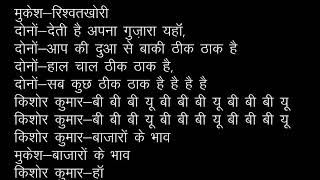 मुकेश–रिश्वतखोरी
दोनों–देती है अपना गुज़ारा यहाॅं,
दोनों–आप की दुआ से बाकी ठीक ठाक है
दोनों–हाल चाल ठीक ठाक है,
दोनों–सब कुछ ठीक ठाक है है है है
किशोर कुमार–बी बी बी यू बी बी बी यू बी बी बी यू
किशोर कुमार–बी बी बी यू बी बी बी यू बी बी बी यू
किशोर कुमार–बाजारों के भाव
मुकेश–बाजारों के भाव
किशोर कुमार–हाॅ